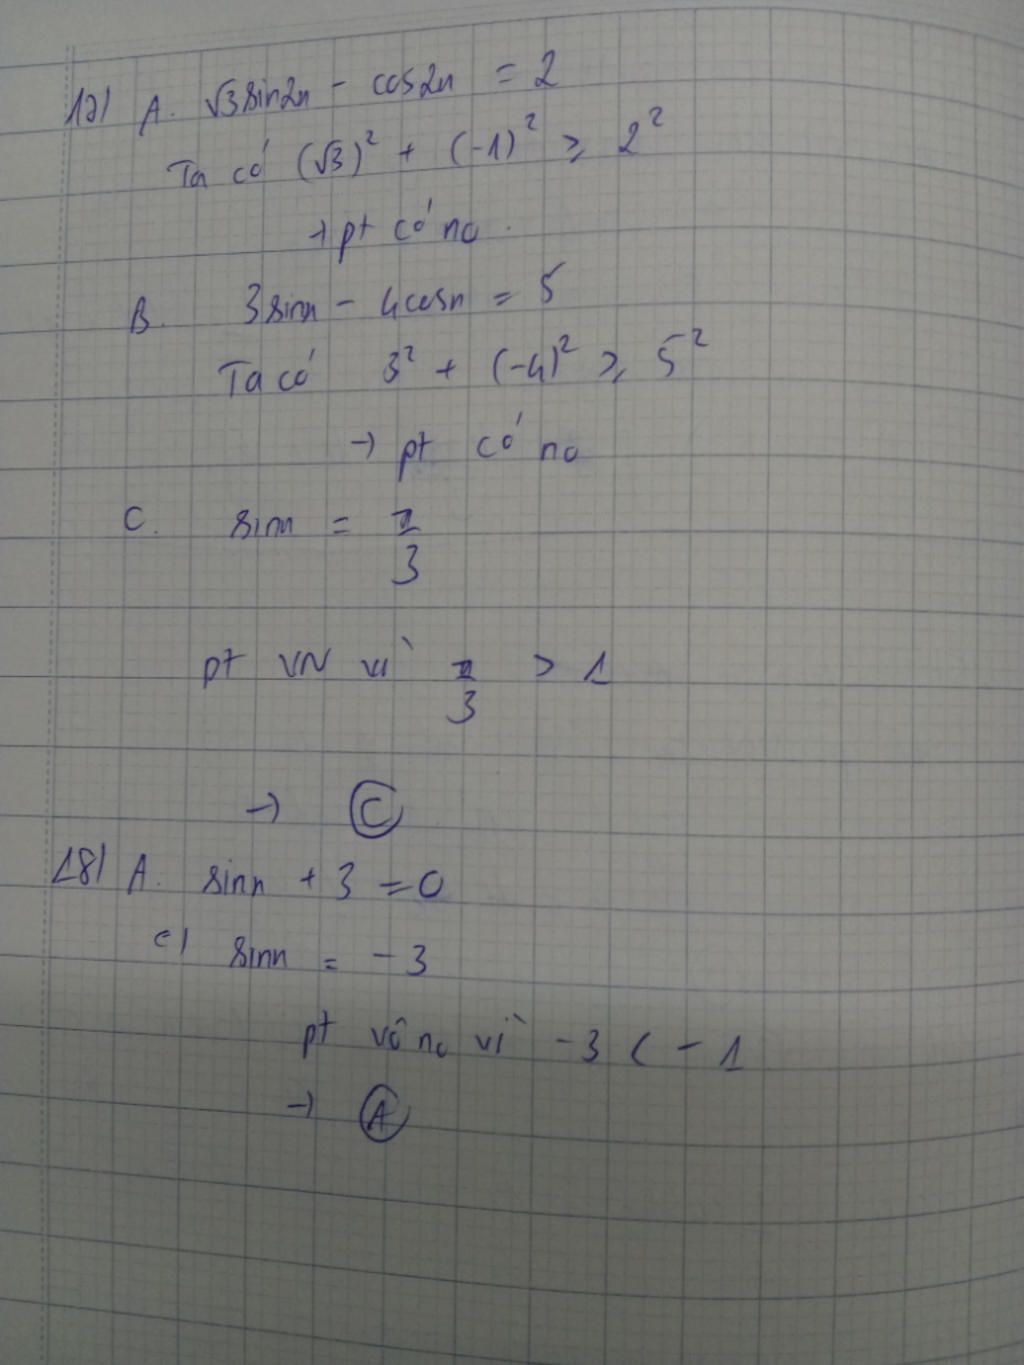 17) A. √3 sin2x - cos2x = 2
Ta có (√3)² + (-1)² ≥ 2²
→ pt có no.
B. 3sinx - 4cosx = 5
Ta có 3² + (-4)² ≥ 5²
→ pt có no
C. sinx = π/3
pt VN vì π/3 > 1
→ C
18) A. sinx + 3 = 0
(=) sinx = -3
pt vô no vì -3 < -1
→ A